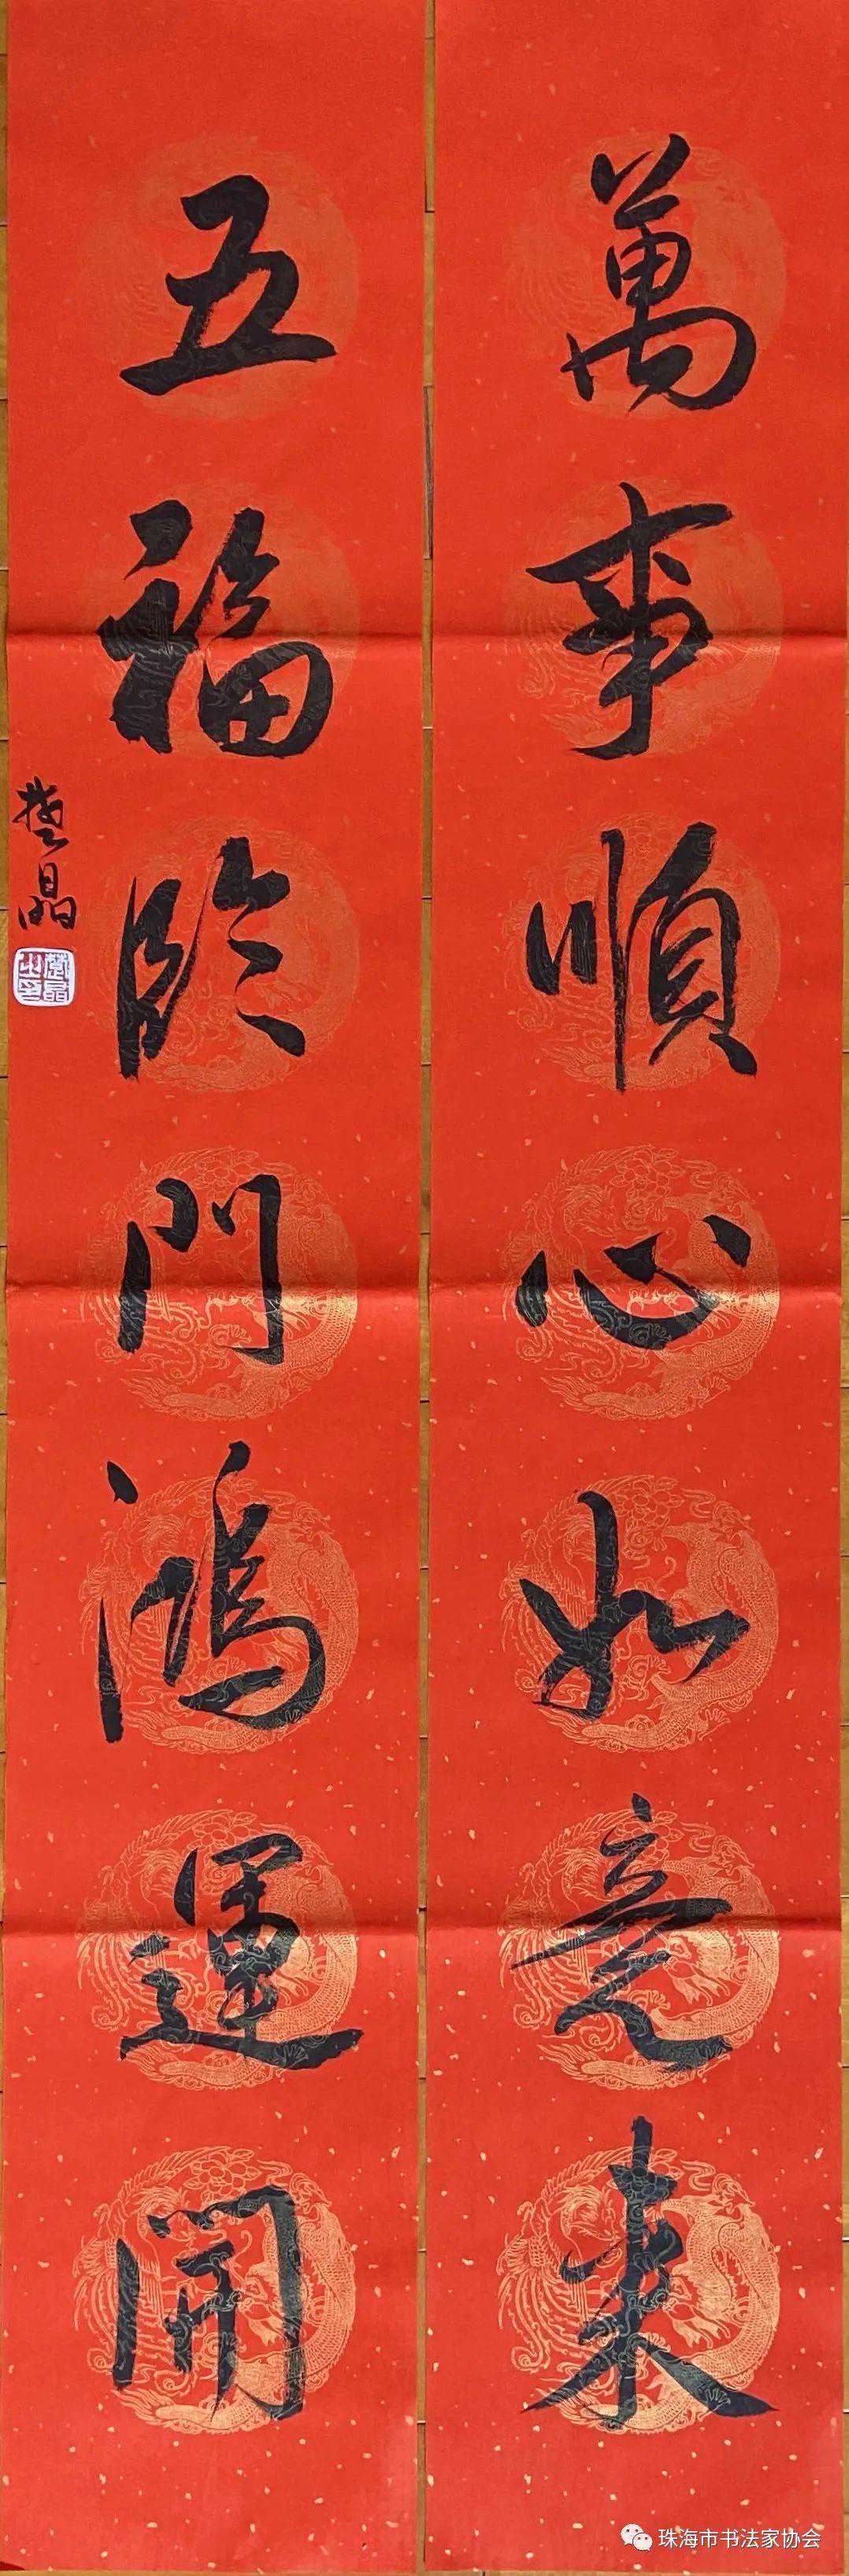 萬事順心如意來
五福臨門鴻運開
楚晶
珠海市书法家协会